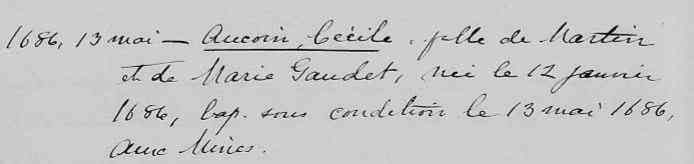 1686, 13 mai — Aucoin, Cécile, fille de Martin
et de Marie Gaudet, née le 12 janvier
1686, bap. sous condition le 13 mai 1686,
aux Mines.